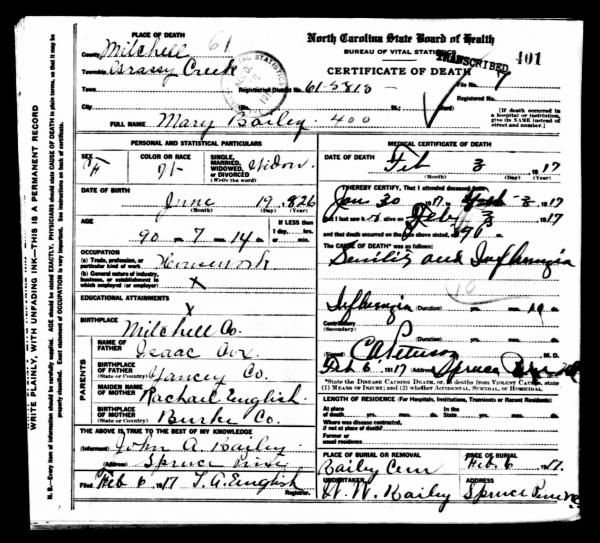 WRITE PLAINLY, WITH UNFADING INK—THIS IS A PERMANENT RECORD
N. B.—Every item of information should be carefully supplied. AGE should be stated EXACTLY. PHYSICIANS should state CAUSE OF DEATH in plain terms, so that it may be
properly classified. Exact statement of OCCUPATION is very important. See instructions on back of certificate.
PLACE OF DEATH
County Mitchell 61
Township Grassy Creek
Town
City
North Carolina State Board of Health
BUREAU OF VITAL STATISTICS
TRANSCRIBED 401
CERTIFICATE OF DEATH
Registered District No. 61-5818
Registered No.
(No. St.; Ward)
[If death occurred in a hospital or institution, give its NAME instead of street and number.]
FULL NAME Mary Bailey 400
PERSONAL AND STATISTICAL PARTICULARS
SEX F
COLOR OR RACE W
SINGLE, MARRIED, WIDOWED, OR DIVORCED (Write the word) Widow.
DATE OF BIRTH
June 19, 1826
(Month) (Day) (Year)
AGE
90 yrs. 7 mos. 14 ds.
If LESS than 1 day, ....hrs. or ....min.?
OCCUPATION
(a) Trade, profession, or particular kind of work Housework
(b) General nature of industry, business, or establishment in which employed (or employer) X
EDUCATIONAL ATTAINMENTS X
BIRTHPLACE
Mitchell Co.
PARENTS
NAME OF FATHER Isaac Cox
BIRTHPLACE OF FATHER (State or County) Yancey Co.
MAIDEN NAME OF MOTHER Rachael English
BIRTHPLACE OF MOTHER (State or County) Burke Co.
THE ABOVE IS TRUE TO THE BEST OF MY KNOWLEDGE
(Informant) John A. Bailey
(Address) Spruce Pine
Filed Feb 6, 1917 T. A. English
Registrar.
MEDICAL CERTIFICATE OF DEATH
DATE OF DEATH Feb 3 1917
(Month) (Day) (Year)
I HEREBY CERTIFY, That I attended deceased from
Jan 30 1917, to Feb 3 1917
that I last saw h alive on Feby 3 1917
and that death occurred on the date above stated, at
The CAUSE OF DEATH* was as follows:
Senility and Influenzia
(Duration) yrs. mos. ds.
Contributory Influenzia
(Secondary)
(Duration) yrs. mos. 10 ds.
(Signed) C A Peterson M. D.
Feb 6, 1917 (Address) Spruce Pine
*State the DISEASE CAUSING DEATH, or, in deaths from VIOLENT CAUSES, state (1) MEANS OF INJURY; and (2) whether ACCIDENTAL, SUICIDAL, or HOMICIDAL.
LENGTH OF RESIDENCE (For Hospitals, Institutions, Transients or Recent Residents)
At place of death yrs. mos. ds. In the State yrs. mos. ds.
Where was disease contracted, if not at place of death?
Former or usual residence
PLACE OF BURIAL OR REMOVAL
Bailey Cem
DATE OF BURIAL
Feb. 6, 1917.
UNDERTAKER
W. W. Bailey
ADDRESS
Spruce Pine NC